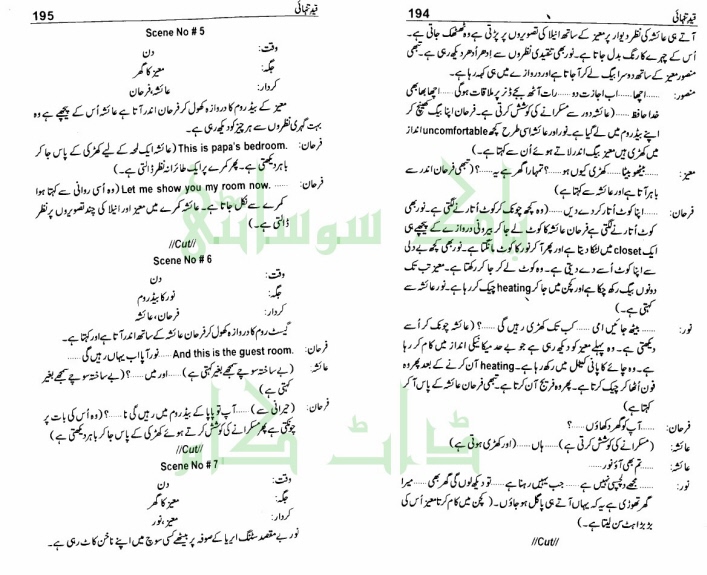 194
قید تنہائی
آتے ہی عائشہ کی نظر دیوار پر معیز کے ساتھ انیلا کی تصویروں پر پڑتی ہے وہ ٹھٹھک جاتی ہے۔
اُس کے چہرے کا رنگ بدل جاتا ہے۔ نور بھی تنقیدی نظروں سے اِدھر اُدھر دیکھ رہی ہے۔ تبھی
منصور معیز کے ساتھ دوسرا بیگ لے کر آ جاتا ہے اور دروازے میں ہی کہہ رہا ہے۔
منصور: اچھا.....اب اجازت دو.....رات آٹھ بجے ڈنر پر ملاقات ہوگی.....اچھا بھابھی
خدا حافظ.....(عائشہ دور سے مسکرانے کی کوشش کرتی ہے۔ فرحان اپنا بیگ کھینچ کر
اپنے بیڈروم میں لے گیا ہے۔ نور اور عائشہ اسی طرح کچھ uncomfortable انداز
میں کھڑی ہیں معیز بیگ اندر لاتے ہوئے اُن سے کہتا ہے۔)
معیز: بیٹھو بیٹا.....کھڑی کیوں ہو.....؟ تمہارا گھر ہے یہ.....؟ (تبھی فرحان اندر سے
باہر آتا ہے اور عائشہ سے کہتا ہے)
فرحان: اپنا کوٹ اُتار کر دے دیں.....(وہ کچھ چونک کر کوٹ اُتارنے لگتی ہے۔ نور بھی
کوٹ اُتارنے لگتی ہے فرحان عائشہ کا کوٹ لے جا کر بیرونی دروازے کے پیچھے ہی
ایک closet میں لٹکا دیتا ہے اور پھر آ کر نور کا کوٹ مانگتا ہے۔ نور بھی کچھ بے دلی
سے اپنا کوٹ اُسے دے دیتی ہے۔ وہ کوٹ لے کر جا کر رکھتا ہے۔ معیز تب تک
دونوں بیگ رکھ چکا ہے اور کچن میں جا کر heating چیک کر رہا ہے۔ نور عائشہ سے
کہتی ہے۔)
نور: بیٹھ جائیں امی.....کب تک کھڑی رہیں گی.....؟ (عائشہ چونک کر اُسے
دیکھتی ہے۔ وہ پہلے معیز کو دیکھ رہی ہے جو بے حد میکانیکی انداز میں کام کر رہا
ہے۔ وہ چائے کا پانی کیتلی میں رکھ رہا ہے۔ heating آن کرنے کے بعد پھر وہ
فون اُٹھا کر چیک کرتا ہے۔ پھر وہ فریج آن کرتا ہے۔ تبھی فرحان عائشہ کے پاس آ کر
کہتا ہے)
فرحان: .....آپ کو گھر دکھاؤں.....؟
عائشہ: (مسکرانے کی کوشش کرتی ہے) ہاں.....(اور کھڑی ہوتی ہے)
عائشہ: تم بھی آؤ نور.....
نور: مجھے دلچسپی نہیں ہے.....جب یہیں رہنا ہے.....تو دیکھ لوں گی گھر بھی.....میرا
گھر تھوڑی ہے یہ کہ یہاں آتے ہی پاگل ہو جاؤں۔ (کچن میں کام کرتا معیز اُس کی
بڑبڑاہٹ سن لیتا ہے۔)
//Cut//
195
قید تنہائی
Scene No # 5
وقت: دن
جگہ: معیز کا گھر
کردار: عائشہ، فرحان
معیز کے بیڈروم کا دروازہ کھول کر فرحان اندر آتا ہے عائشہ اُس کے پیچھے ہے وہ
بہت گہری نظروں سے ہر چیز کو دیکھ رہی ہے۔
فرحان: This is papa's bedroom. (عائشہ ایک لمحہ کے لیے کھڑکی کے پاس جا کر
باہر دیکھتی ہے۔ پھر کمرے پر ایک طائرانہ نظر ڈالتی ہے۔)
فرحان: .....Let me show you my room now. (وہ اسی روانی سے کہتا ہوا
کمرے سے نکل جاتا ہے۔ عائشہ کمرے میں معیز اور انیلا کی چند تصویروں پر نظر
ڈالتی ہے۔)
//Cut//
Scene No # 6
وقت: دن
جگہ: نور کا بیڈروم
کردار: فرحان، عائشہ
گیسٹ روم کا دروازہ کھول کر فرحان عائشہ کے ساتھ اندر آتا ہے اور کہتا ہے۔
فرحان: And this is the guest room. .....نور آپا اب یہاں رہیں گی.....
عائشہ: (بے ساختہ سوچے سمجھے بغیر کہتی ہے).....اور میں.....؟ (بے ساختہ سوچے سمجھے بغیر
کہتی ہے)
فرحان: (حیرانی سے).....آپ تو پاپا کے بیڈروم میں رہیں گی نا.....؟ (وہ اُس کی بات پر
چونکتی ہے پھر مسکرانے کی کوشش کرتے ہوئے کھڑکی کے پاس جا کر باہر دیکھتی ہے)
//Cut//
Scene No # 7
وقت: دن
جگہ: معیز کا گھر
کردار: معیز، نور
نور بے مقصد سٹنگ ایریا کے صوفہ پر بیٹھے کسی سوچ میں اپنے ناخن کاٹ رہی ہے۔
پاک سوسائٹی
ڈاٹ کام